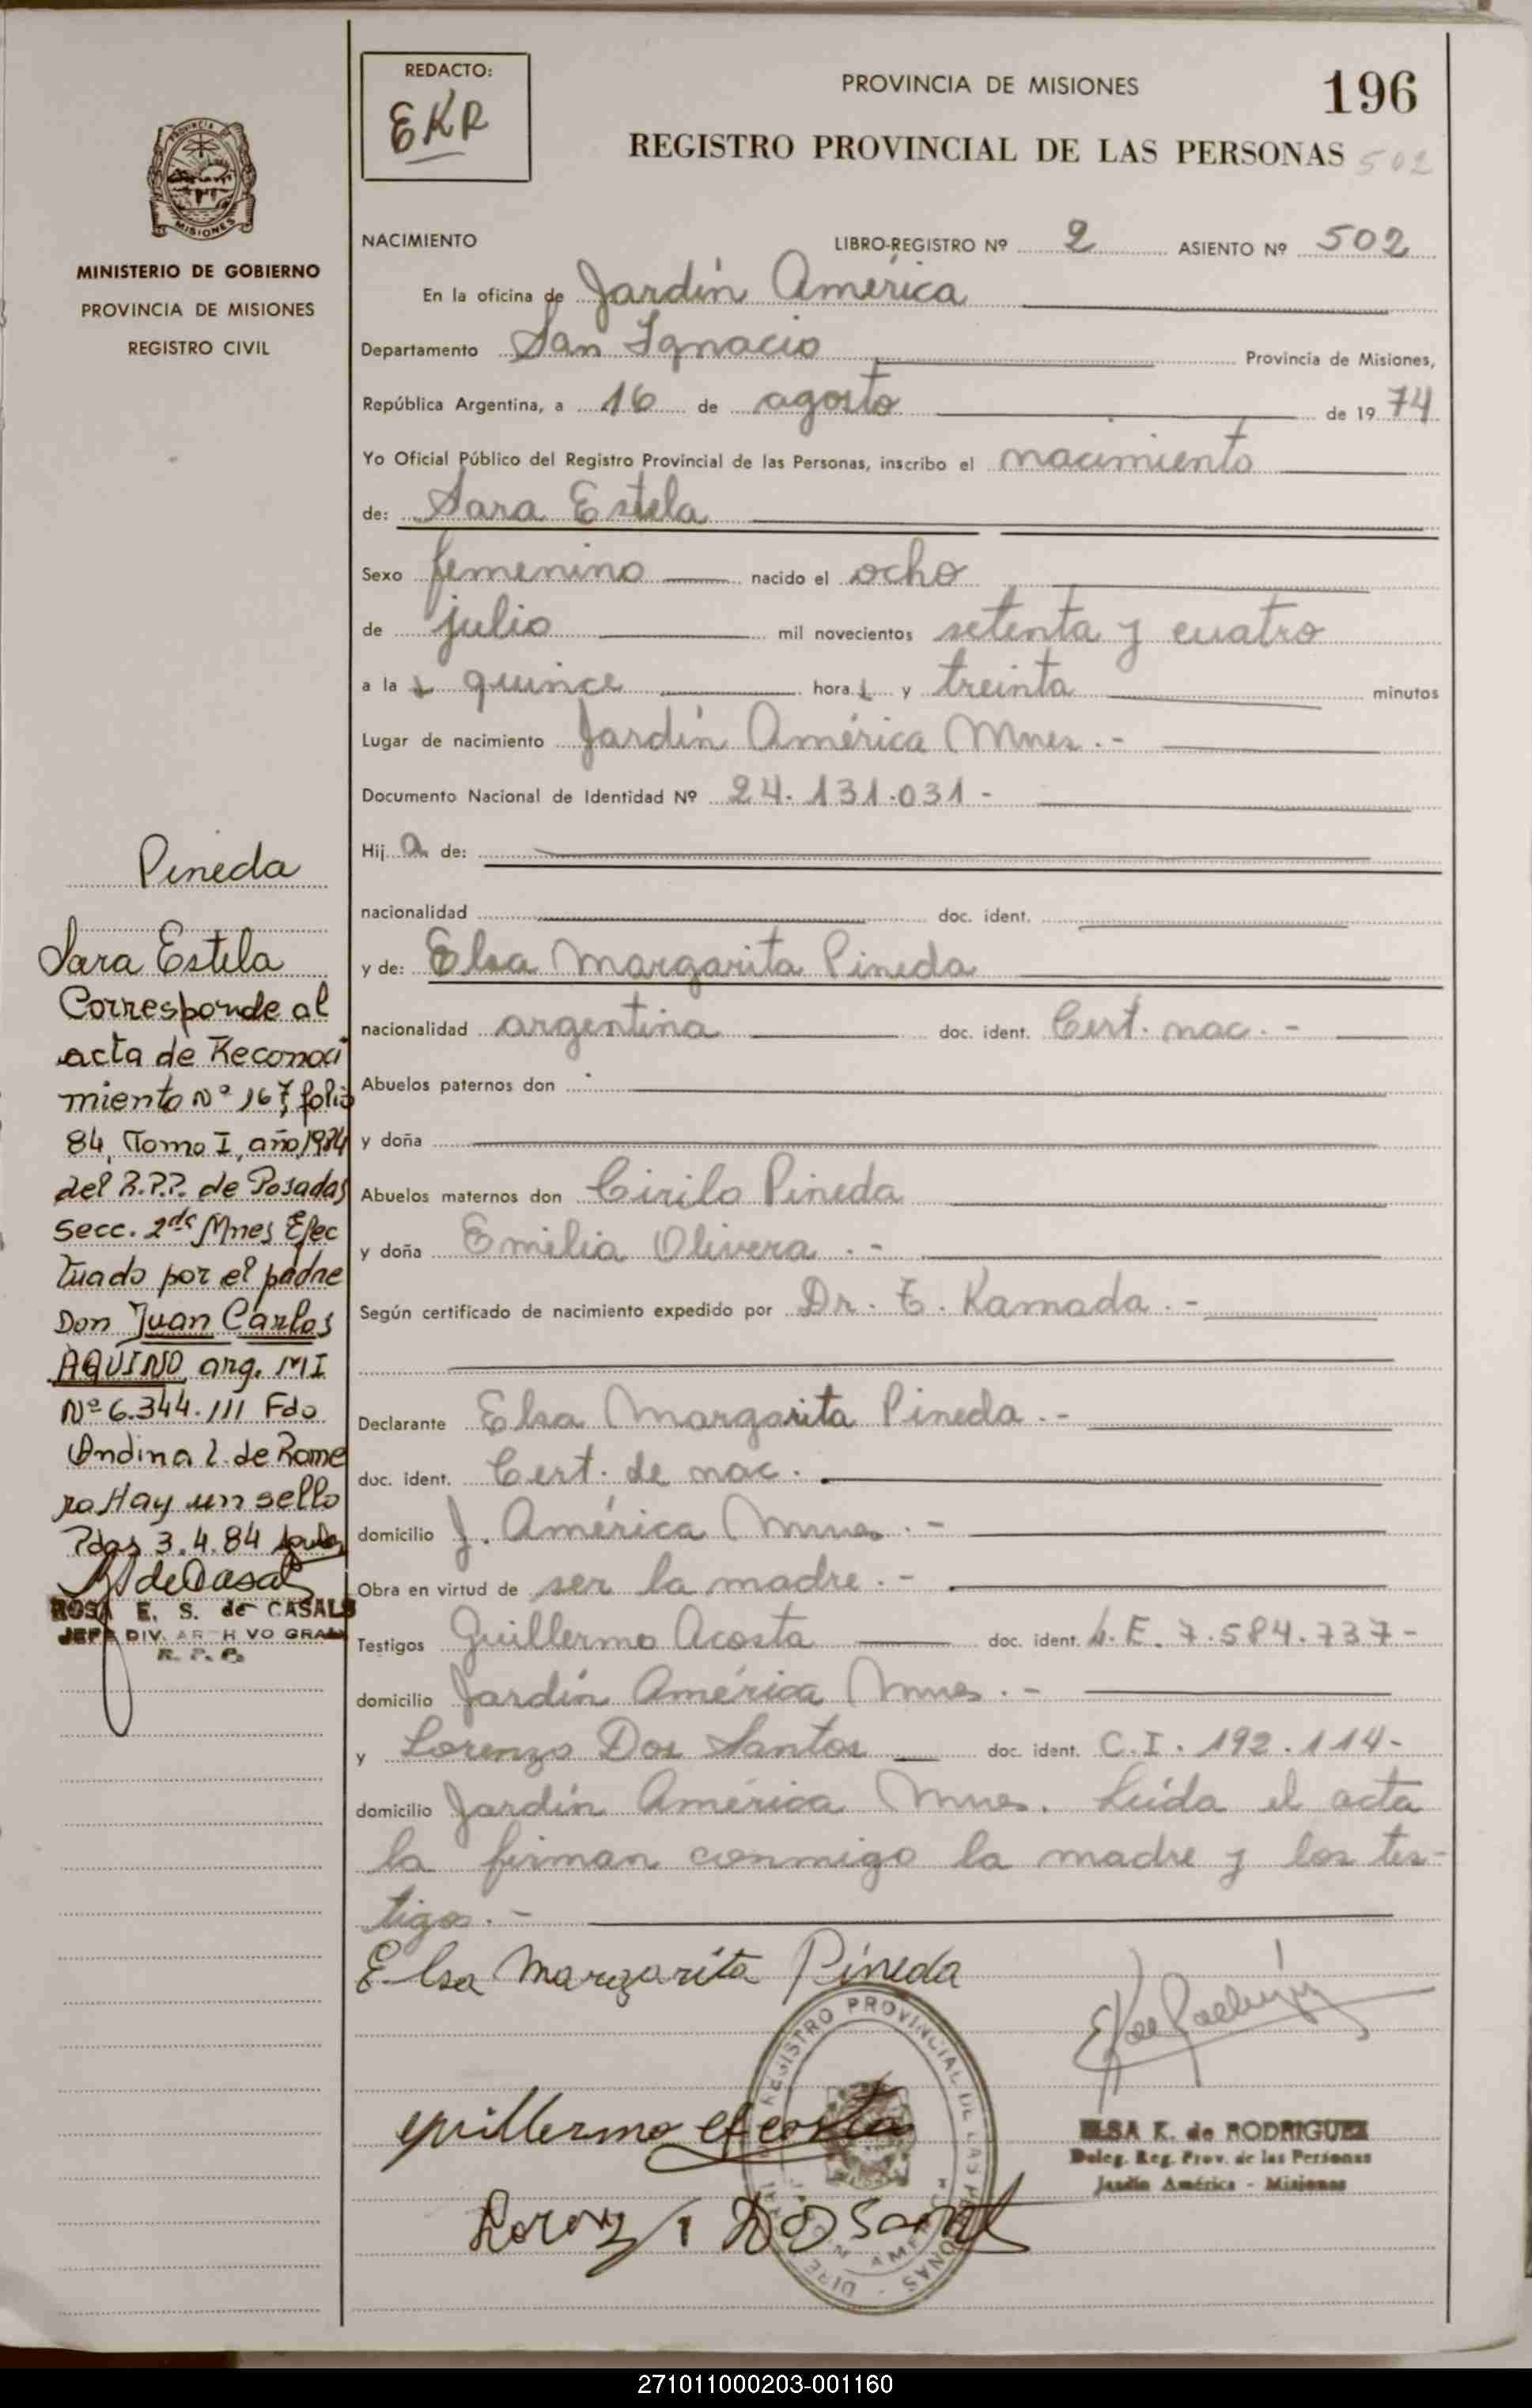 REDACTO:
EKR
PROVINCIA DE MISIONES
196
REGISTRO PROVINCIAL DE LAS PERSONAS
502
PROVINCIA DE
MISIONES
MINISTERIO DE GOBIERNO
PROVINCIA DE MISIONES
REGISTRO CIVIL
NACIMIENTO
LIBRO-REGISTRO Nº 2 ASIENTO Nº 502
En la oficina de Jardín América
Departamento San Ignacio Provincia de Misiones,
República Argentina, a 16 de agosto de 1974
Yo Oficial Público del Registro Provincial de las Personas, inscribo el nacimiento
de: Sara Estela
Sexo femenino nacido el ocho
de julio mil novecientos setenta y cuatro
a la s quince hora s y treinta minutos
Lugar de nacimiento Jardín América Mnes. -
Documento Nacional de Identidad Nº 24.131.031 -
Hij a de:
nacionalidad doc. ident.
y de: Elsa Margarita Pineda
nacionalidad argentina doc. ident. Cert. nac. -
Abuelos paternos don
y doña
Abuelos maternos don Cirilo Pineda
y doña Emilia Olivera . -
Según certificado de nacimiento expedido por Dr. E. Kamada . -
Declarante Elsa Margarita Pineda . -
doc. ident. Cert. de nac.
domicilio J. América Mnes . -
Obra en virtud de ser la madre . -
Testigos Guillermo Acosta doc. ident. L.E. 7.584.737 -
domicilio Jardín América Mnes . -
y Lorenzo Dos Santos doc. ident. C.I. 192.114 -
domicilio Jardín América Mnes. Leída el acta
la firman conmigo la madre y los tes-
tigos. -
Elsa Margarita Pineda
Guillermo Acosta
REGISTRO PROVINCIAL DE LAS PERSONAS
ELSA K. de RODRIGUEZ
Deleg. Reg. Prov. de las Personas
Jardín América - Misiones
Pineda
Sara Estela
Corresponde al
acta de Reconoci
miento Nº 167, folio
84, Tomo I, año 1984
del R.P.P. de Posadas
Secc. 2da Mnes Efec
tuado por el padre
Don Juan Carlos
AQUINO arg. MI
Nº 6.344.111 Fdo
Ondina L. de Rome
ro Hay un sello
Pdas 3.4.84
ROSA E. S. de CASALS
JEFA DIV. ARCHIVO GRAL
R. P. P.
271011000203-001160